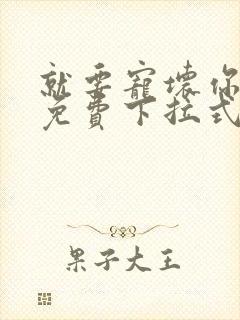 就要寵壞你
免費下拉式
果子大王